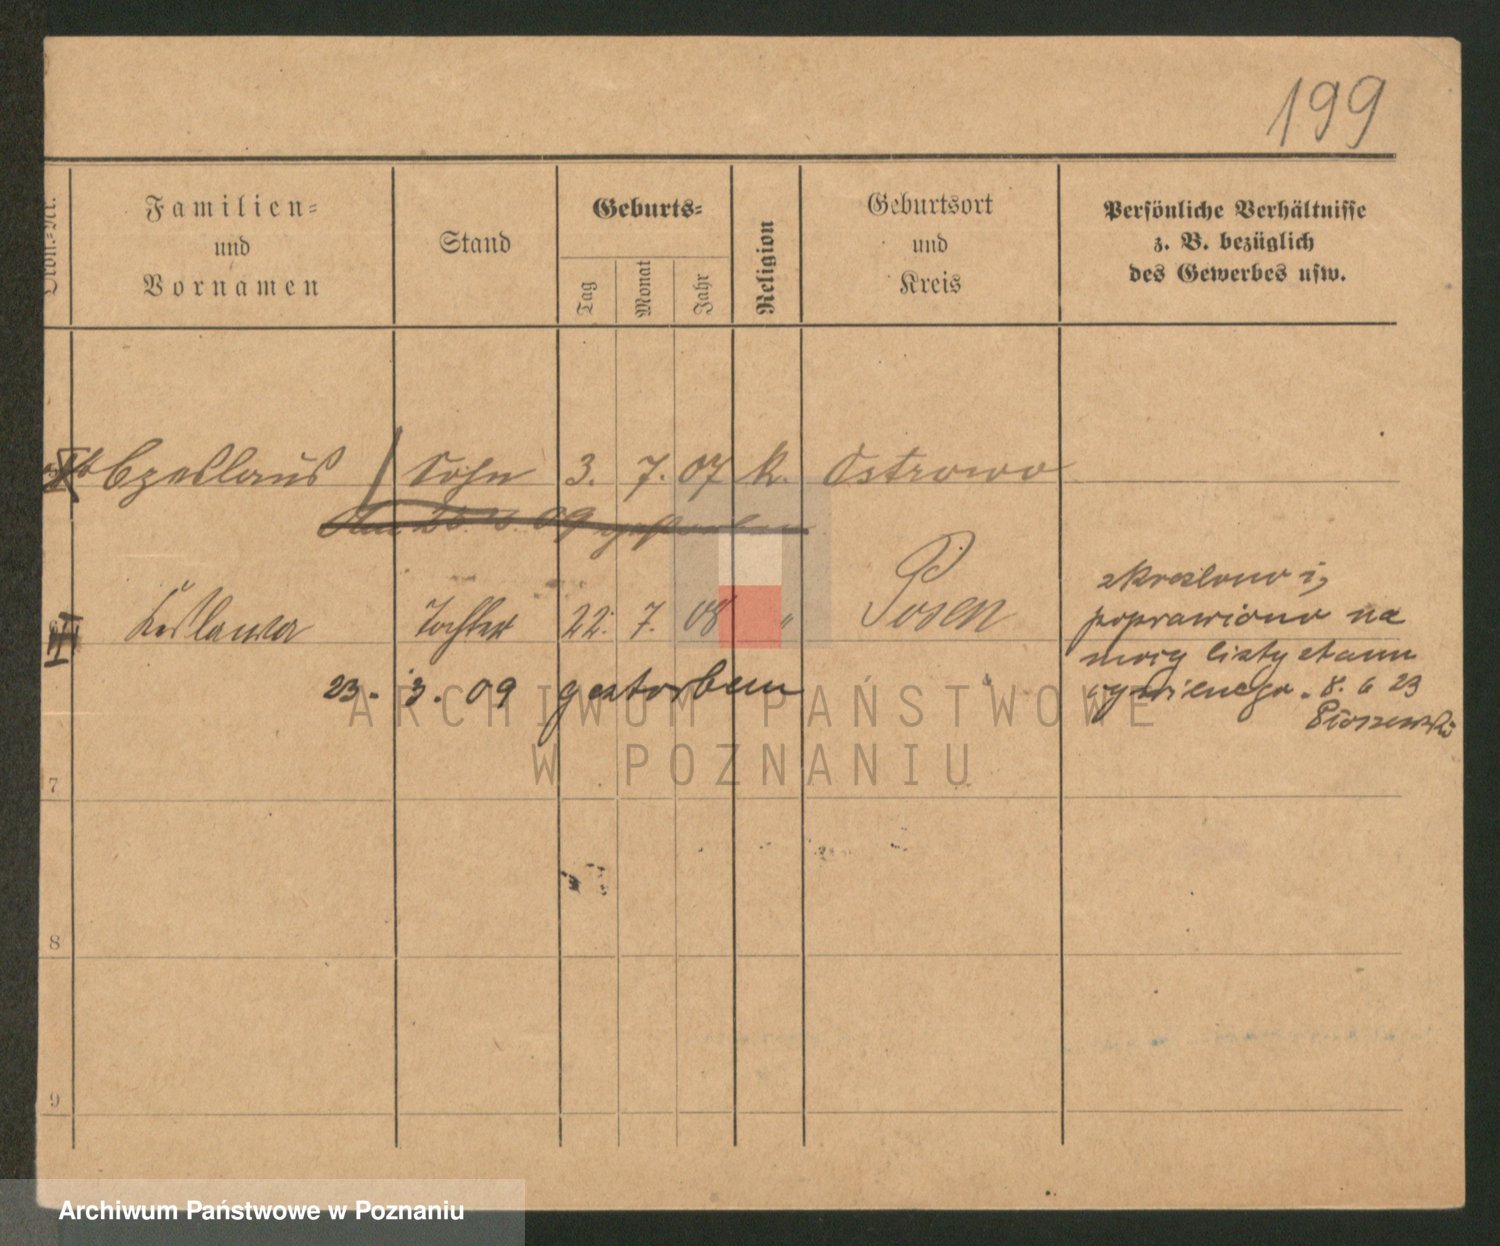 199
Ordn.-Nr.
Familien-
und
Vornamen
Stand
Geburts-
Tag
Monat
Jahr
Religion
Geburtsort
und
Kreis
Persönliche Verhältnisse
z. B. bezüglich
des Gewerbes usw.
Czeslaus Sohn 3. 7. 07 k. Ostrowo
09 gestorben
Tochter 22. 7. 08 " Posen
23. 3. 09 gestorben
skreślono i
poprawiono na
mocy listy stanu
cywilnego. 8. 6 23
7
8
9
ARCHIWUM PAŃSTWOWE
W POZNANIU
Archiwum Państwowe w Poznaniu